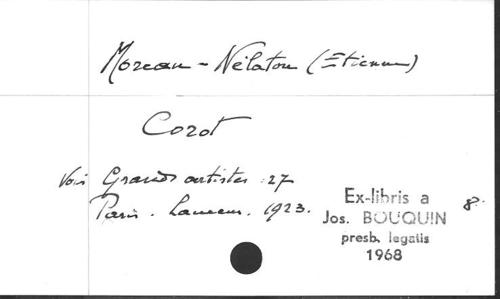 Moreau - Nélaton (Etienne)
Corot
Voir Grands artistes : 27
Paris. Laurens. 1923.
8°
Ex-libris a
Jos. BOUQUIN
presb. legatis
1968